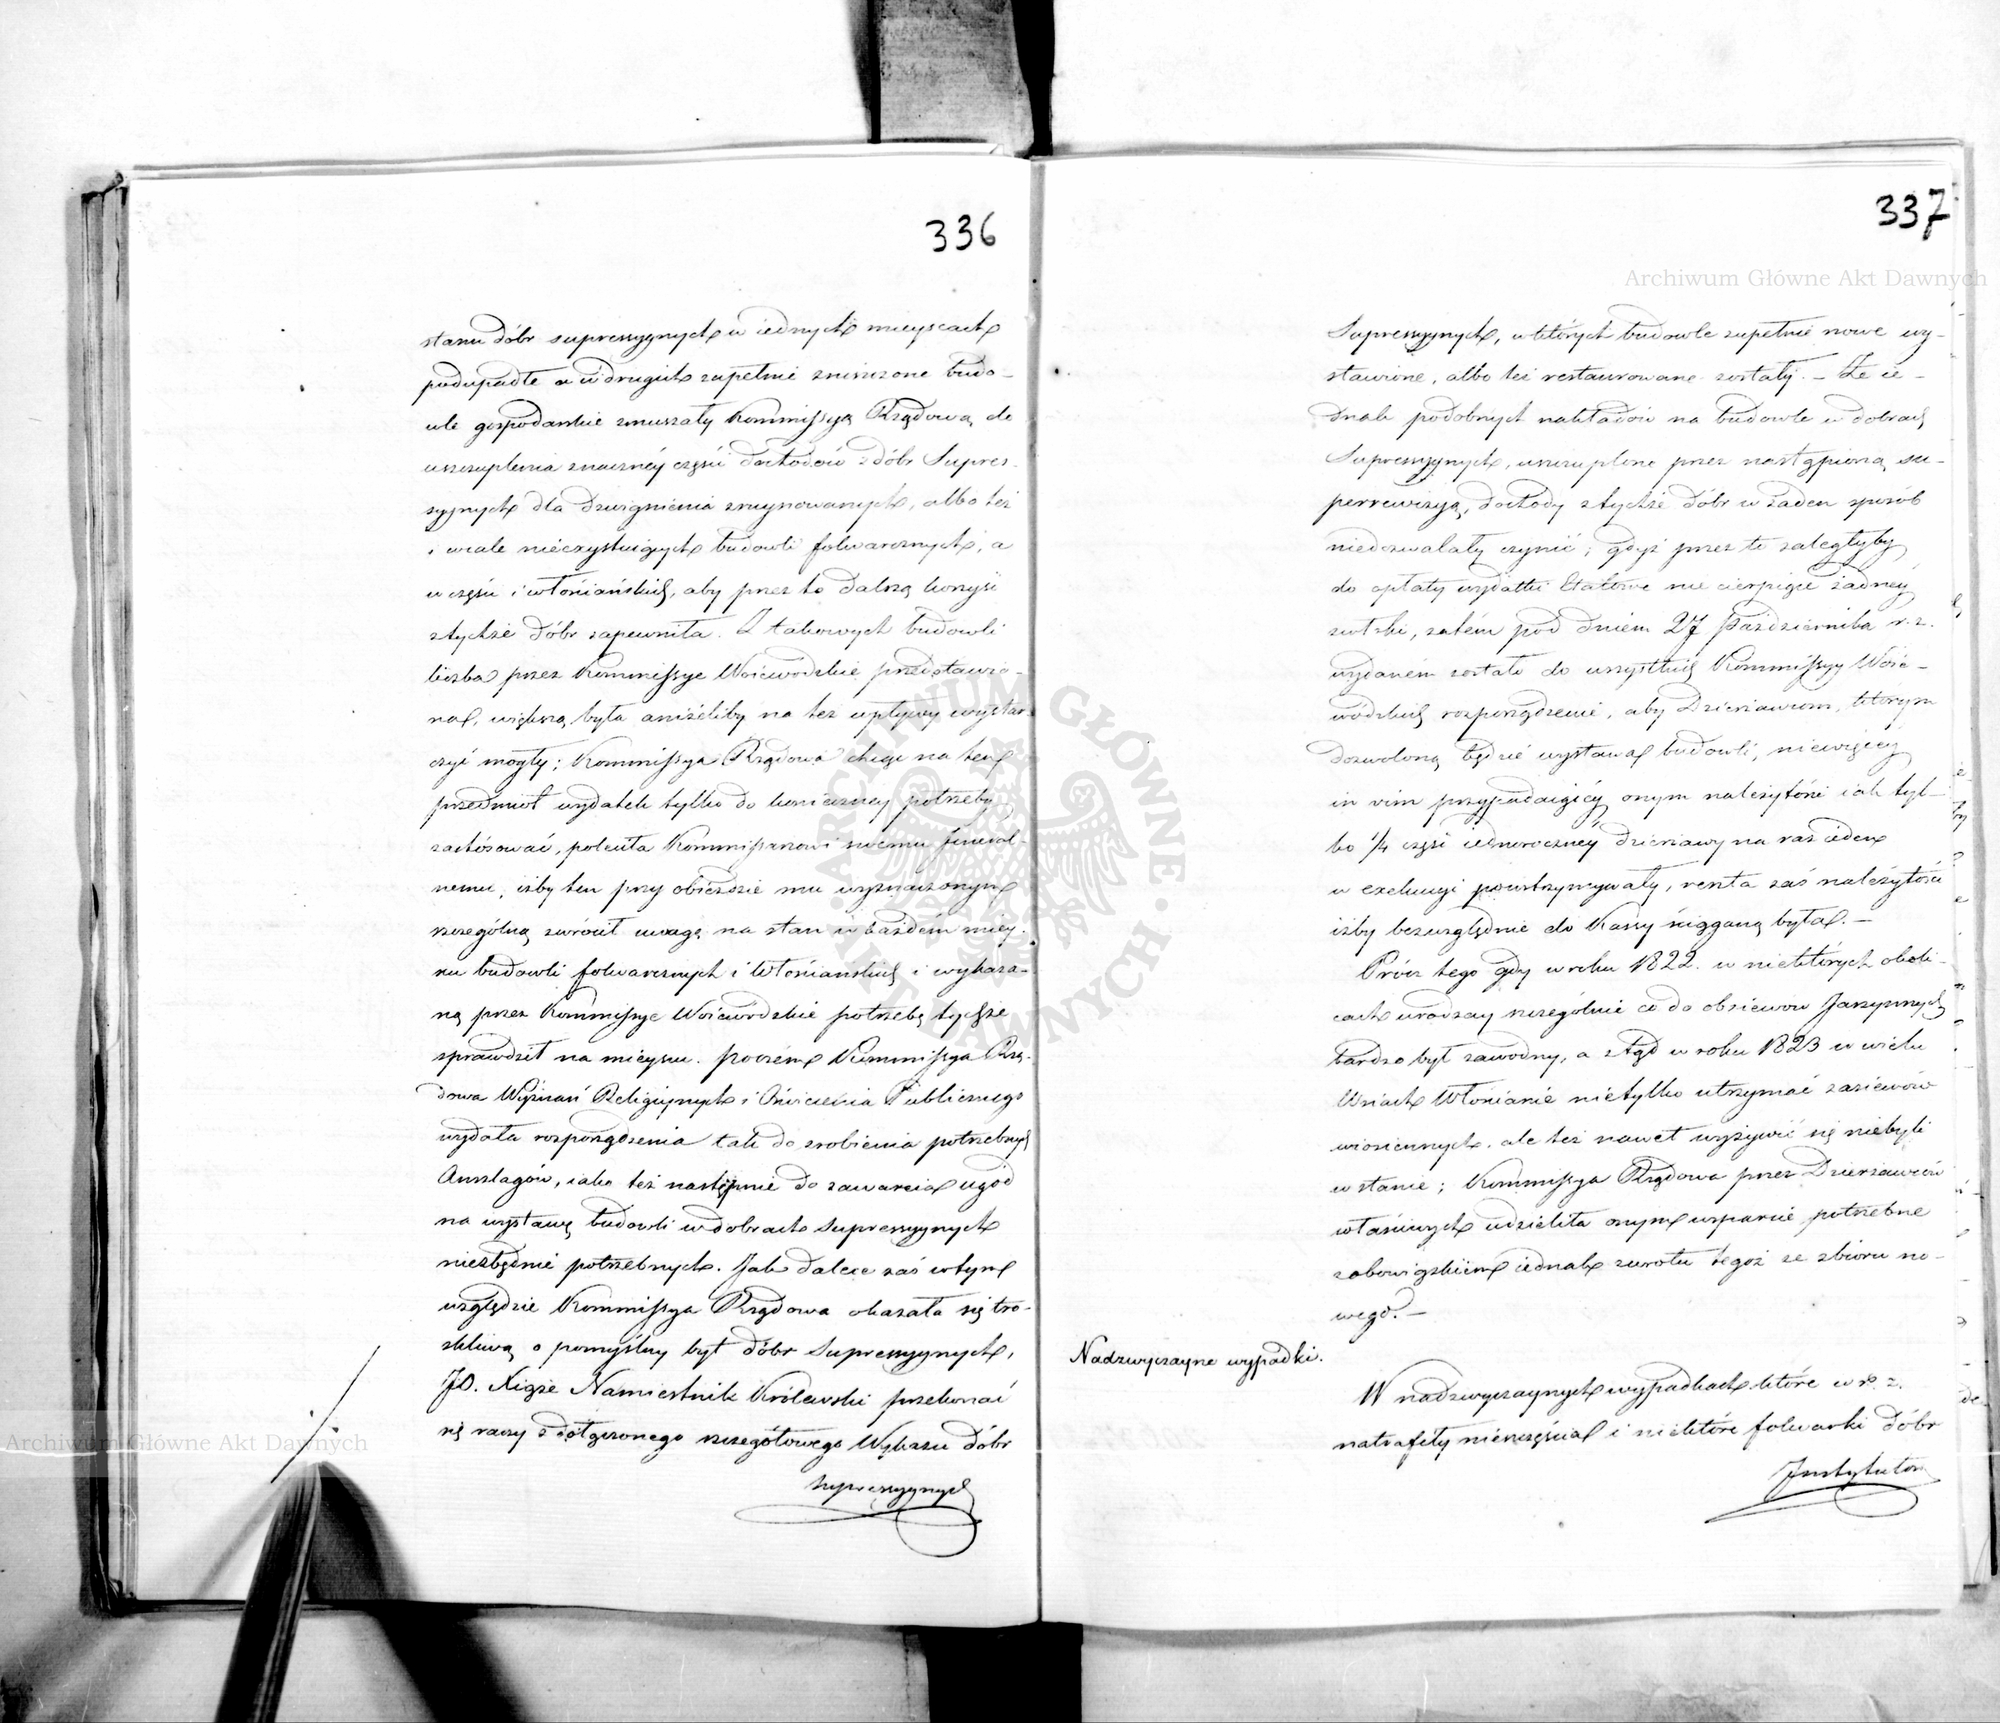 336
stanu dóbr supressyynych w iednych mieyscach
podupadłe a w drugich zupełnie zniszczone budo-
wle gospodarskie zmuszały Kommissyą Rządową do
uszczuplenia znacznéy części dochodów z dóbr Supres-
syynych dla dzwignienia zruynowanych, albo też
i wcale nieexystuiących budowli folwarcznych, a
w części i włościańskich, aby przez to dalszą korzyść
z tychże dóbr zapewniła. Z takowych budowli
liczba przez Kommissye Woiewodzkie przedstawio-
na, większą była aniżeliby na też wpływy wystar-
czyć mogły; Kommissya Rządowa chcąc na ten
przedmiot wydatek tylko do konieczney potrzeby
zastósować, poleciła Kommissarzowi swemu Jeneral-
nemu, iżby ten przy obieździe mu wyznaczonym
szczególną zwrócił uwagę na stan w każdém miey-
scu budowli folwarcznych i Włościańskich i wykaza-
ną przez Kommissye Woiewódzkie potrzebę tychże
sprawdził na mieyscu. poczém Kommissya Rzą-
dowa Wyznań Religiynych i Oświecenia Publicznego
wydała rozporządzenia tak do zrobienia potrzebnych
Anszlagów, iako też następnie do zawarcia ugód
na wystawę budowli w dobrach supressyynych
niezbędnie potrzebnych. Jak dalece zaś w tym
względzie Kommissya Rządowa okazała się tro-
skliwą o pomyślny byt dóbr Supressyynych,
JO. Xiąże Namiestnik Królewski przekonać
się raczy z dołączonego szczegółowego Wykazu dóbr
supressyynych
337
Supressyynych, w których budowle zupełnie nowe wy-
stawione, albo też restaurowane zostały. – Że ie-
dnak podobnych nakładów na budowle w dobrach
Supressyynych, uszczuplone przez nastąpioną su-
perrewizyą, dochody z tychże dóbr w żaden sposób
niedozwalały czynić; gdyż przez to zaległyby
do opłaty wydatki Etatowe nie cierpiące żadney
zwłoki, zatém pod dniem 27 Października r. z.
wydaném zostało do wszystkich Kommissyy Woie-
wódzkich rozporządzenie, aby Dzierżawcom, którym
dozwoloną będzie wystawa budowli, niewięcéy
in vim przypadaiącéy onym należytości iak tyl-
ko ¼ część iednorocznéy dzierżawy na raz ieden
w exekucyi powstrzymywały, reszta zaś należytości
iżby bezwzględnie do Kassy ściąganą była. –
Prócz tego gdy w roku 1822. w niektórych okoli-
cach urodzay szczególnie co do obsiewów Jarzynnych
bardzo był zawodny, a ztąd w roku 1823 w wielu
Wsiach Włościanie nietylko utrzymać zasiewów
wiosennych. ale też nawet wyżywić się niebyli
w stanie; Kommissya Rządowa przez Dzierżawców
właściwych udzieliła onym wsparcie potrzebne
z obowiązkiem iednak zwrotu tegoż ze zbioru no-
wego. –
Nadzwyczayne wypadki.
W nadzwyczaynych wypadkach które w r. z.
natrafiły nieszczęścia i niektóre folwarki dóbr
Instytutow
Archiwum Główne Akt Dawnych
Archiwum Główne Akt Dawnych
ARCHIWUM GŁÓWNE AKT DAWNYCH